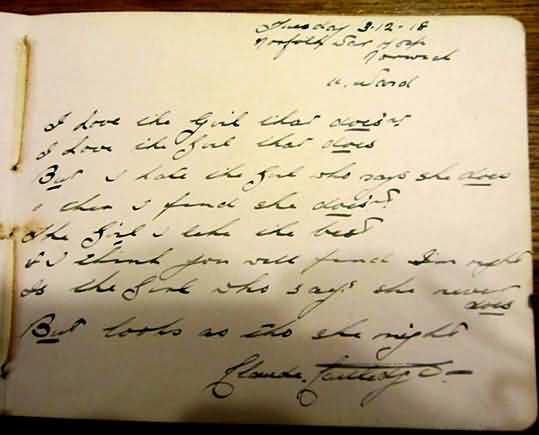 Tuesday 3-12-18
Norfolk War Hosp
Norwich
11. Ward
I Love the Girl that doesnt
I Love the Girl that does
But I hate the Girl who says she does
& then I find she doesnt
The Girl I like the best
& I think you will find Im right
Is the Girl who says she never does
But looks as tho she might
Claude